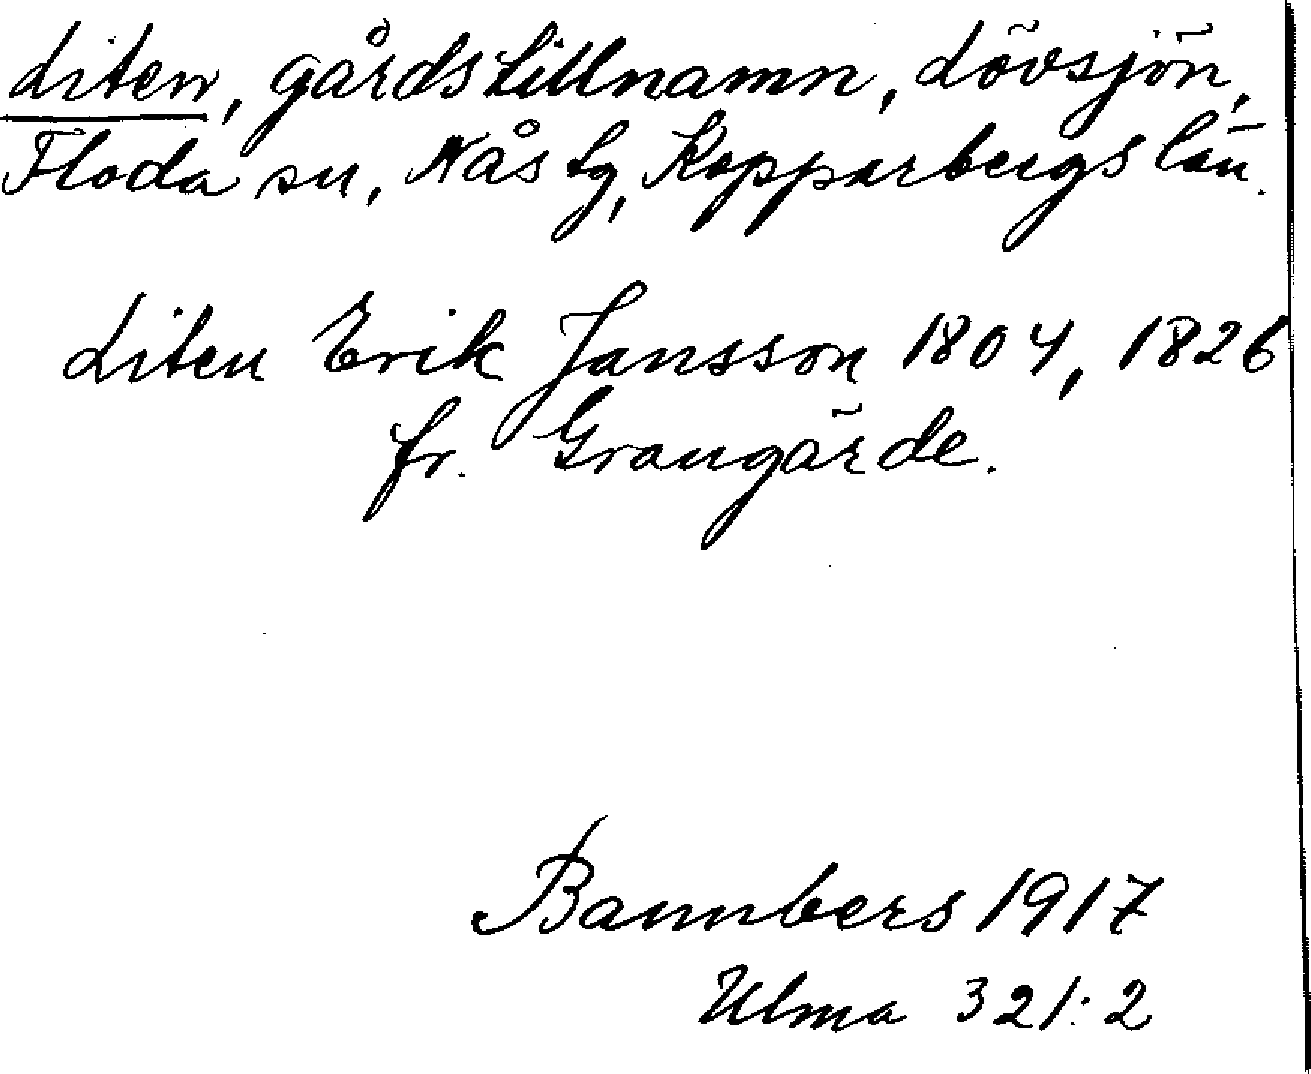 Liten, gårdstillnamn, Lövsjön,
Floda sn, Nås tg, Kopparbergs län.
Liten Erik Jansson 1804, 1826
fr. Grangärde.
Bannbers 1917
Ulma 321:2